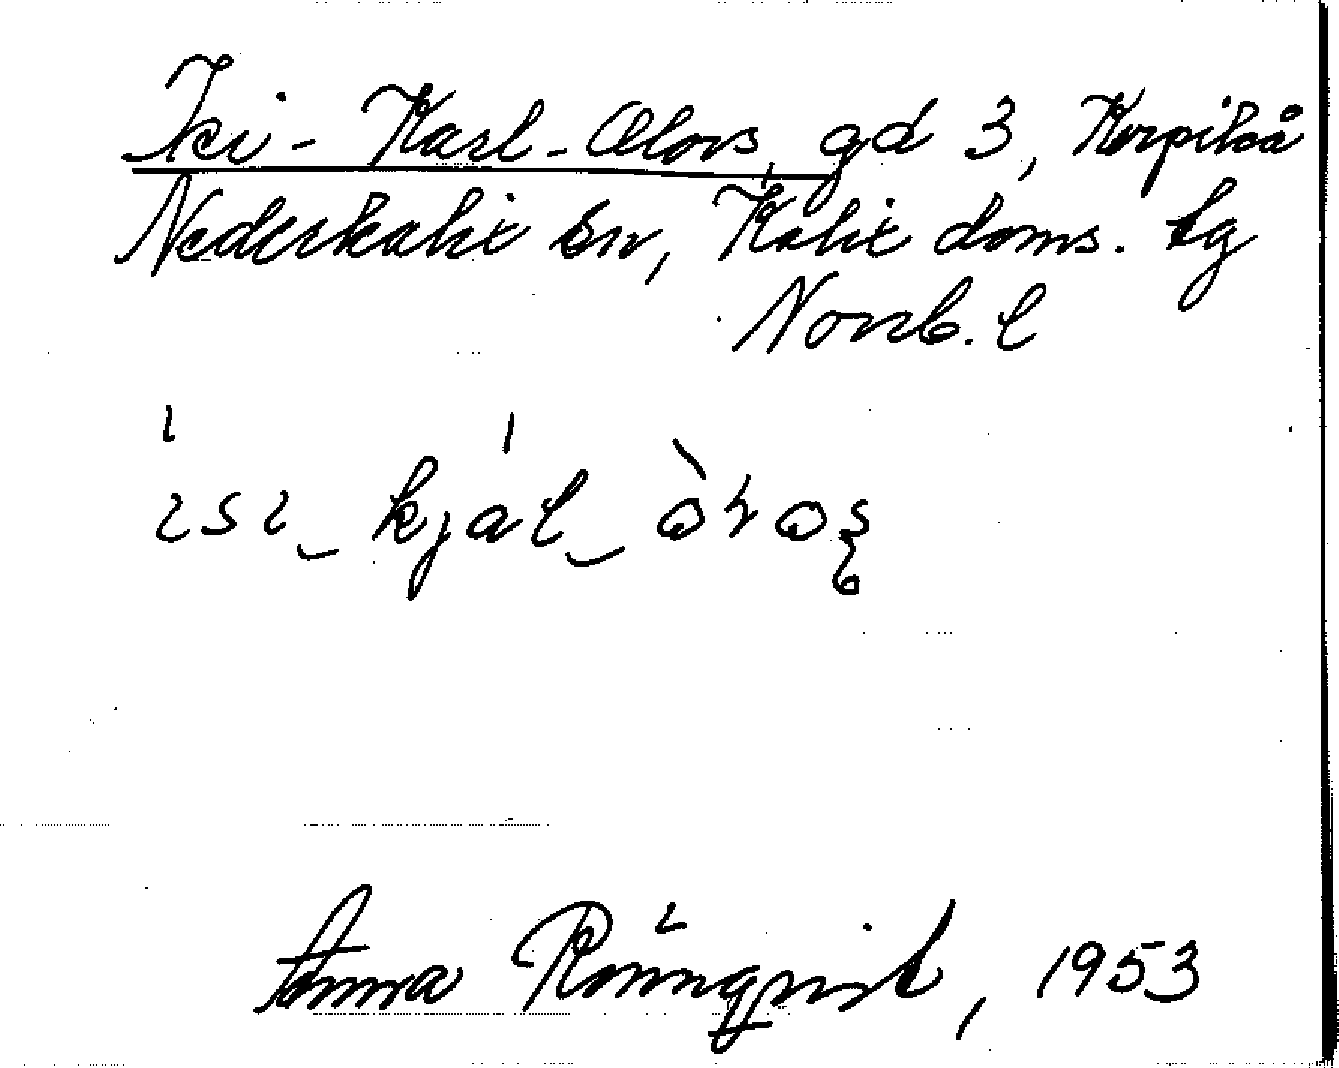 Isi-Karl-Olovs, gd 3, Korpikå
Nederkalix sn, Kalix doms. tg
Norrb. l
ısı_kjál_òvoş
Anna Rönnqvist, 1953